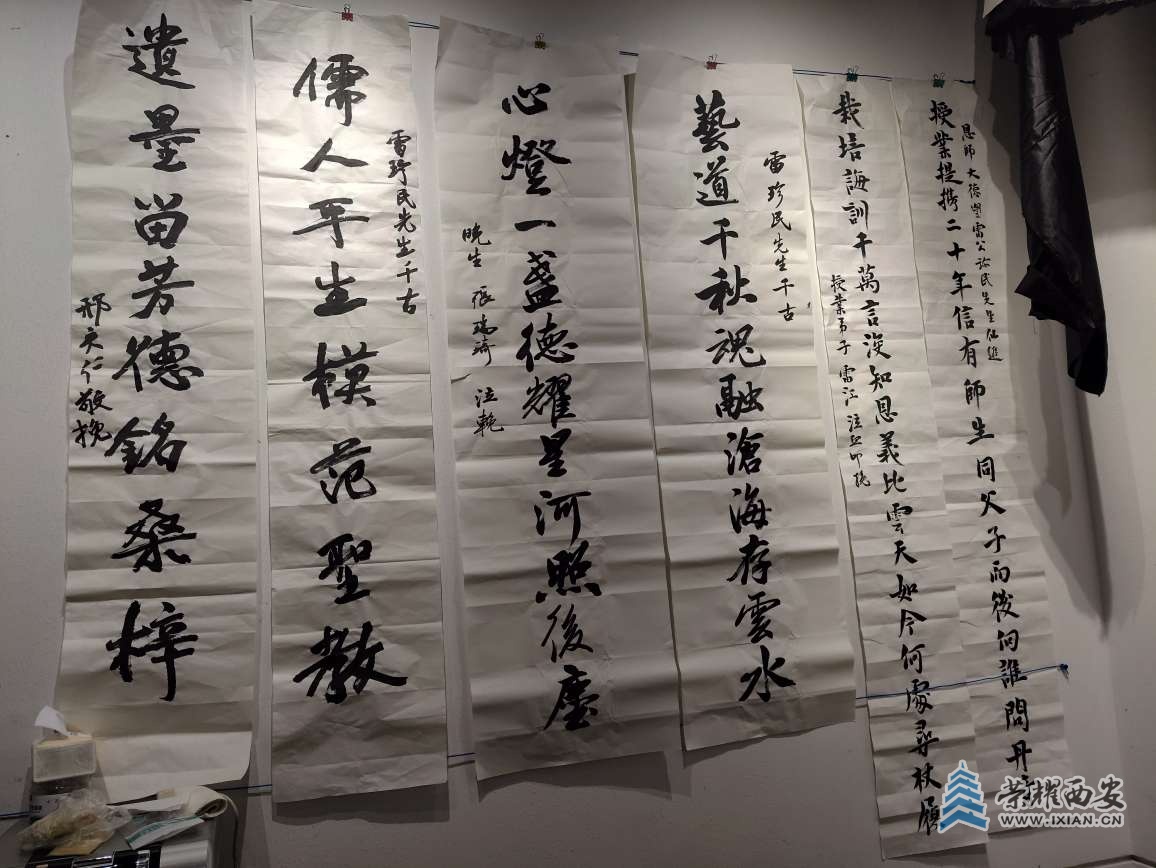 恩師 大德望雷公珍民先生仙逝
授業提携二十年信有師生同父子而後向誰問丹
栽培誨訓千萬言深知恩義比雲天如今何處尋杖履
授業弟子 雷江 泣血叩挽
雷珍民先生千古
藝道千秋魂融滄海存雲水
心燈一盞德耀星河照後塵
晚生 張瑞琦 泣輓
雷珍民先生千古
儒人平生模范聖教
遺墨留芳德銘桑梓
邢天仁敬挽
荣耀西安
WWW.IXIAN.CN